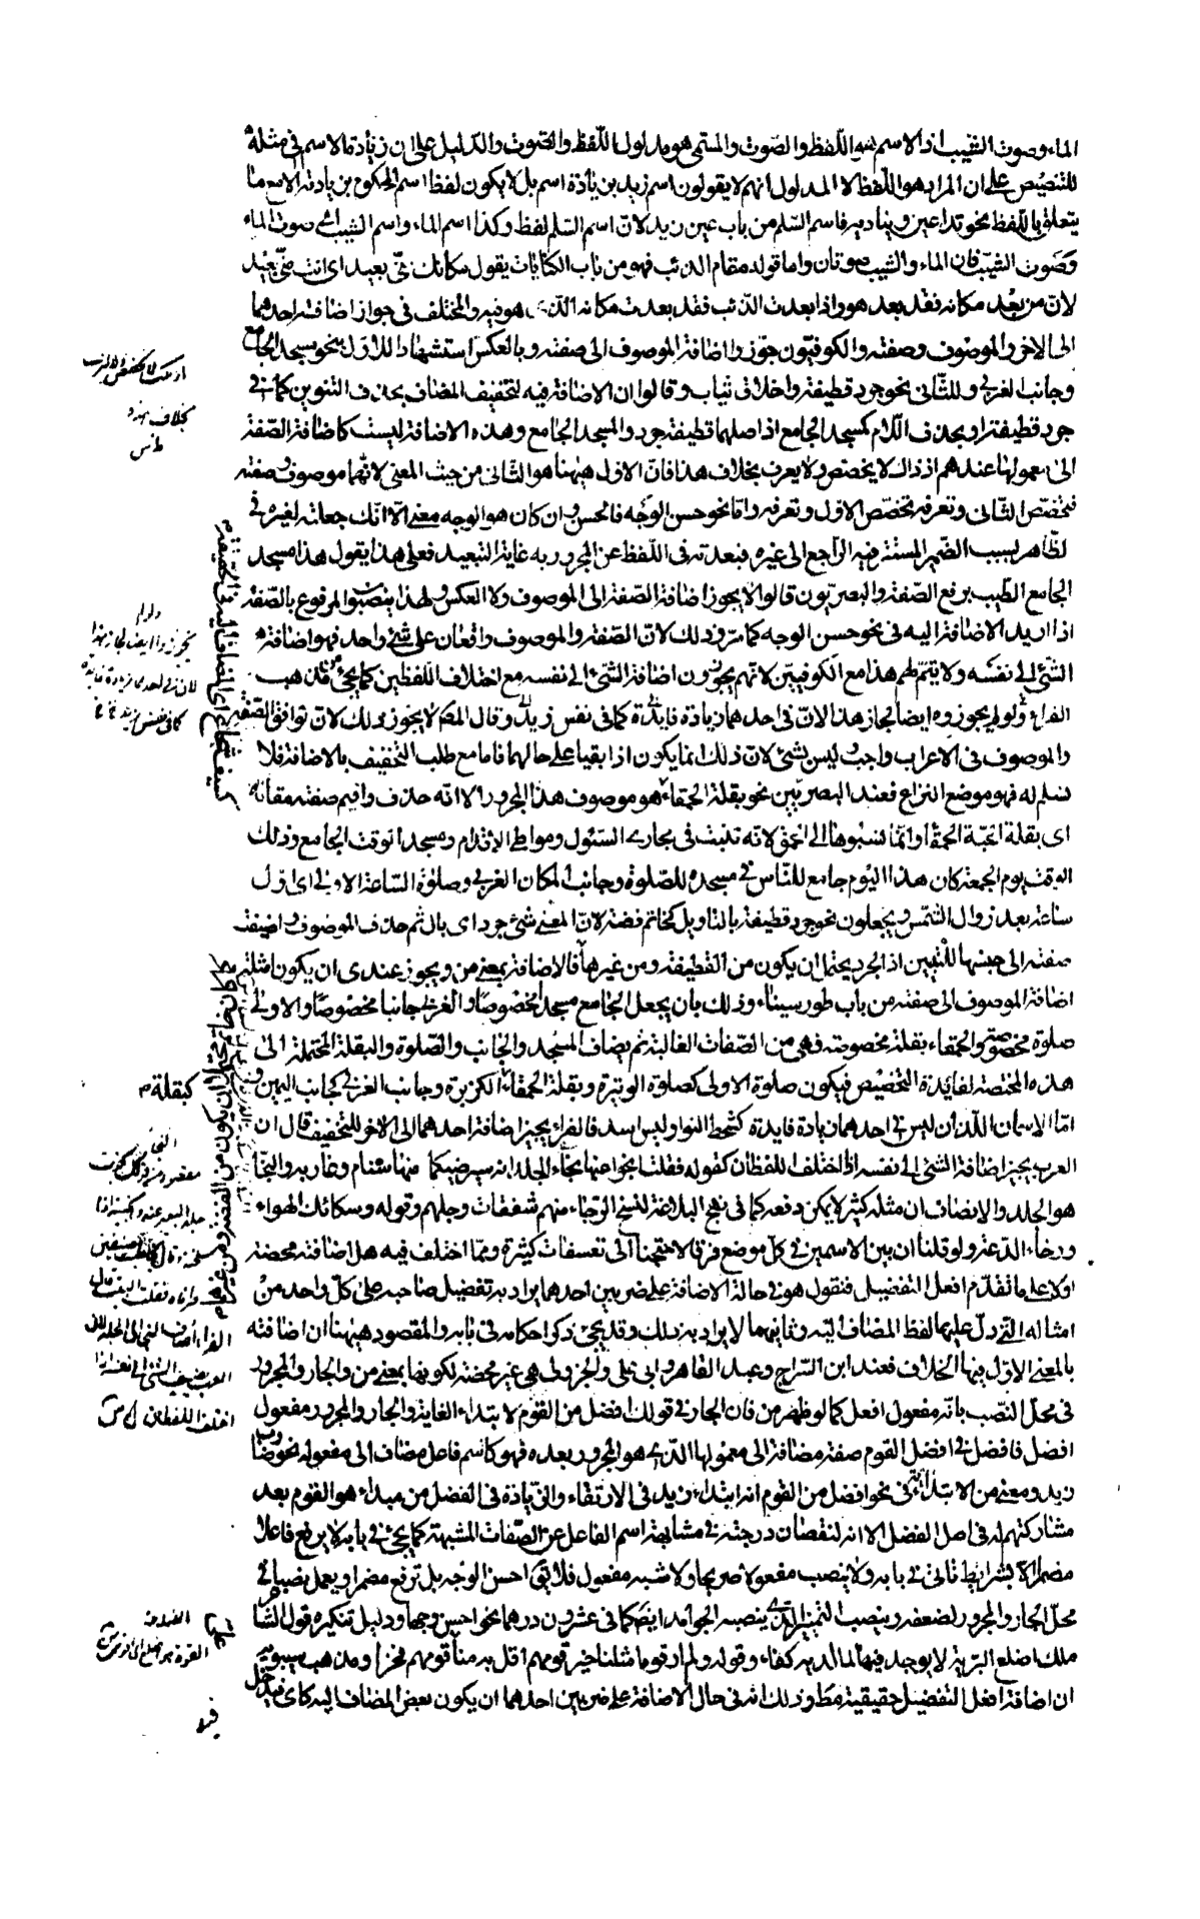 الماء وصوت الشيب اذ الاسم هو اللفظ والصوت والمسمى هو مدلول اللفظ والصوت والدليل على ان زيادة الاسم فى مثله
للتنصيص على ان المراد هو اللفظ لا المدلول انهم لا يقولون اسم زيد بزيادة اسم بل لا يكون لفظ اسم المحكوم بزيادته الا مع ما
يتعلق باللفظ نحو تداعين ويناديه فاسم السلم من باب عين زيد لان اسم السلم لفظ وكذا اسم الماء واسم الشيب اى صوت الماء
وصوت الشيب فان الماء والشيب صوتان واما قوله مقام الذئب فهو من باب الكنايات يقول مكانك منى بعيد اى انت منى بعيد
لان من بعد مكانه فقد بعد هو واذا بعدت الذئب فقد بعدت مكانه الذى هو فيه والمختلف فى جواز اضافة احدهما
الى الاخر والموصوف وصفته والكوفيون جوزوا اضافة الموصوف الى صفته وبالعكس استشهادا للاول بنحو مسجد الجامع
وجانب الغربى وللثانى نحو جرد قطيفة واخلاق ثياب وقالوا ان الاضافة فيه لتخفيف المضاف بحذف التنوين كما فى
جرد قطيفة او بحذف اللام كمسجد الجامع اذ اصلهما قطيفة جرد والمسجد الجامع وهذه الاضافة ليست كاضافة الصفة
الى معمولها عندهم اذ ذاك لا يخصص ولا يعرف بخلاف هذا فان الاول ههنا هو الثانى من حيث المعنى لانهما موصوف وصفته
فتخصص الثانى وتعرفه تخصص الاول وتعرفه واما نحو حسن الوجه فالحسن وان كان هو الوجه معنى الا انك جعلته لغيره فى
لظاهر بسبب الضمير المستتر فيه الراجع الى غيره فبعدته فى اللفظ عن المجرور به غاية التبعيد فعلى هذا يقول هذا مسجد
الجامع الطيب برفع الصفة والبصريون قالوا لا يجوز اضافة الصفة الى الموصوف ولا العكس ولهذا ينصبوا المرفوع بالصفة
اذا اريد الاضافة اليه فى نحو حسن الوجه كما مر وذلك لان الصفة والموصوف واقعان على شئ واحد فهو اضافة
الشئ الى نفسه ولا يتم لهم هذا مع الكوفيين لانهم يجوزون اضافة الشئ الى نفسه مع اختلاف اللفظين كما يجئ من مذهب
الفراء ولو لم يجوزوه ايضا لجاز هذا لان فى احدهما زيادة فايدة كما فى نفس زيد وقال المص لا يجوز وذلك لان توافق الصفة
والموصوف فى الاعراب واجب وليس بشئ لان ذلك انما يكون اذا بقيا على حالهما فاما مع طلب التخفيف بالاضافة فلا
نسلم له فهو موضع النزاع فعند البصريين نحو بقلة الحمقاء هو موصوف هذا المجرور الا انه حذف واقيم صفته مقامه
اى بقلة الحبة الحمقاء وانما نسبوها الى الحمق لانه تنبت فى مجارى السيول ومواطئ الاقدام ومسجد الوقت الجامع وذلك
الوقت يوم الجمعة كان هذا اليوم جامع للناس فى مسجده للصلوة وجانب المكان الغربى وصلوة الساعة الاولى اى اول
ساعة بعد زوال الشمس ويجعلون نحو جرد قطيفة بالتاويل كخاتم فضة لان المعنى شئ جرد اى بال ثم حذف الموصوف واضيفت
صفته الى جنسها للتبيين اذ الجرد يحتمل ان يكون من القطيفة ومن غيرها فالاضافة بمعنى من ويجوز عندى ان يكون امثلة
اضافة الموصوف الى صفته من باب طور سيناء وذلك بان يجعل الجامع مسجدا مخصوصا والغربى جانبا مخصوصا والاولى
صلوة مخصوصة والحمقاء بقلة مخصوصة فهى من الصفات الغالبة ثم يضاف المسجد والجانب والصلوة والبقلة المحتملة الى
هذه المختصة لفائدة التخصيص فيكون صلوة الاولى كصلوة الوتيرة وبقلة الحمقاء كبقلة الكزبرة وجانب الغربى كجانب اليمين و
اما الاسمان اللذان ليس فى احدهما زيادة فايدة كشحط النوا وليس اسد فالفراء يجيز اضافة احدهما الى الاخر للتخفيف قال ان
العرب يجيز اضافة الشئ الى نفسه اذا اختلف اللفظان كقوله فقلت انجوا عنها نجاء الجلد انه سيرضيكما منها سنام وغاربه والنجا
هو الجلد والانصاف ان مثله كثير لا يمكن دفعه كما فى نهج البلاغة لنسخ الرجاء منهم شفقات وجلهم وقوله وسكائك الهواء
ورخاء الدعة ولو قلنا ان بين الاسمين فى كل موضع فرقا لاحتجنا الى تعسفات كثيرة ومما اختلف فيه هل اضافته محضة
اولا على ما تقدم افعل التفضيل فنقول هو فى حالة الاضافة على ضربين احدهما يراد به تفضيل صاحبه على كل واحد من
امثاله التى دل عليها لفظ المضاف اليه وثانيهما لا يراد به ذلك وقد يجئ ذكر احكامه فى بابه والمقصود ههنا ان اضافته
بالمعنى الاول فيها الخلاف فعند ابن السراج وعبد القاهر وابى على والجزولى هى غير محضة لكونها بمعنى من والجار والمجرور
فى محل النصب بانه مفعول افعل كما لو ظهر من فان الجار فى قولك افضل من القوم لابتداء الغاية والجار والمجرور مفعول
افضل فافضل فى افضل القوم صفة مضافة الى معمولها الذى هو المجرور بعده فهو كاسم فاعل مضاف الى مفعوله نحو ضارب
زيد ومعنى من الابتدائية فى نحو افضل من القوم انه ابتداء زيد فى الارتقاء والزيادة فى الفضل من مبداء هو القوم بعد
مشاركتهم له فى اصل الفضل الا انه لنقصان درجته فى مشابهة اسم الفاعل عن الصفات المشبهة كما يجئ فى بابه لا يرفع فاعلا
مضمرا الا بشرايط تاتى فى بابه ولا ينصب مفعولا صريحا ولا شبه مفعول فلا يق احسن الوجه بل ترفع مضمرا ويعمل نصبا فى
محل الجار والمجرور لضعفه وينصب التميز الذى ينصبه الجوامد ايضا كما فى عشرون درهما نحو احسن وجها ودليل تنكيره قول الشاعر
ملك اضلع البرية لا يوجد فيها لما لديه كفاء وقوله ولم ار قوما مثلنا خير قومهم اقل به منا قومهم فخرا ومذهب سيبويه
ان اضافة افعل التفضيل حقيقية مط وذلك انه فى حال الاضافة على ضربين احدهما ان يكون بعض المضاف اليه كاى فيدخل
بخلاف هذا
كبقلة م
اختلف اللفظان
فيه